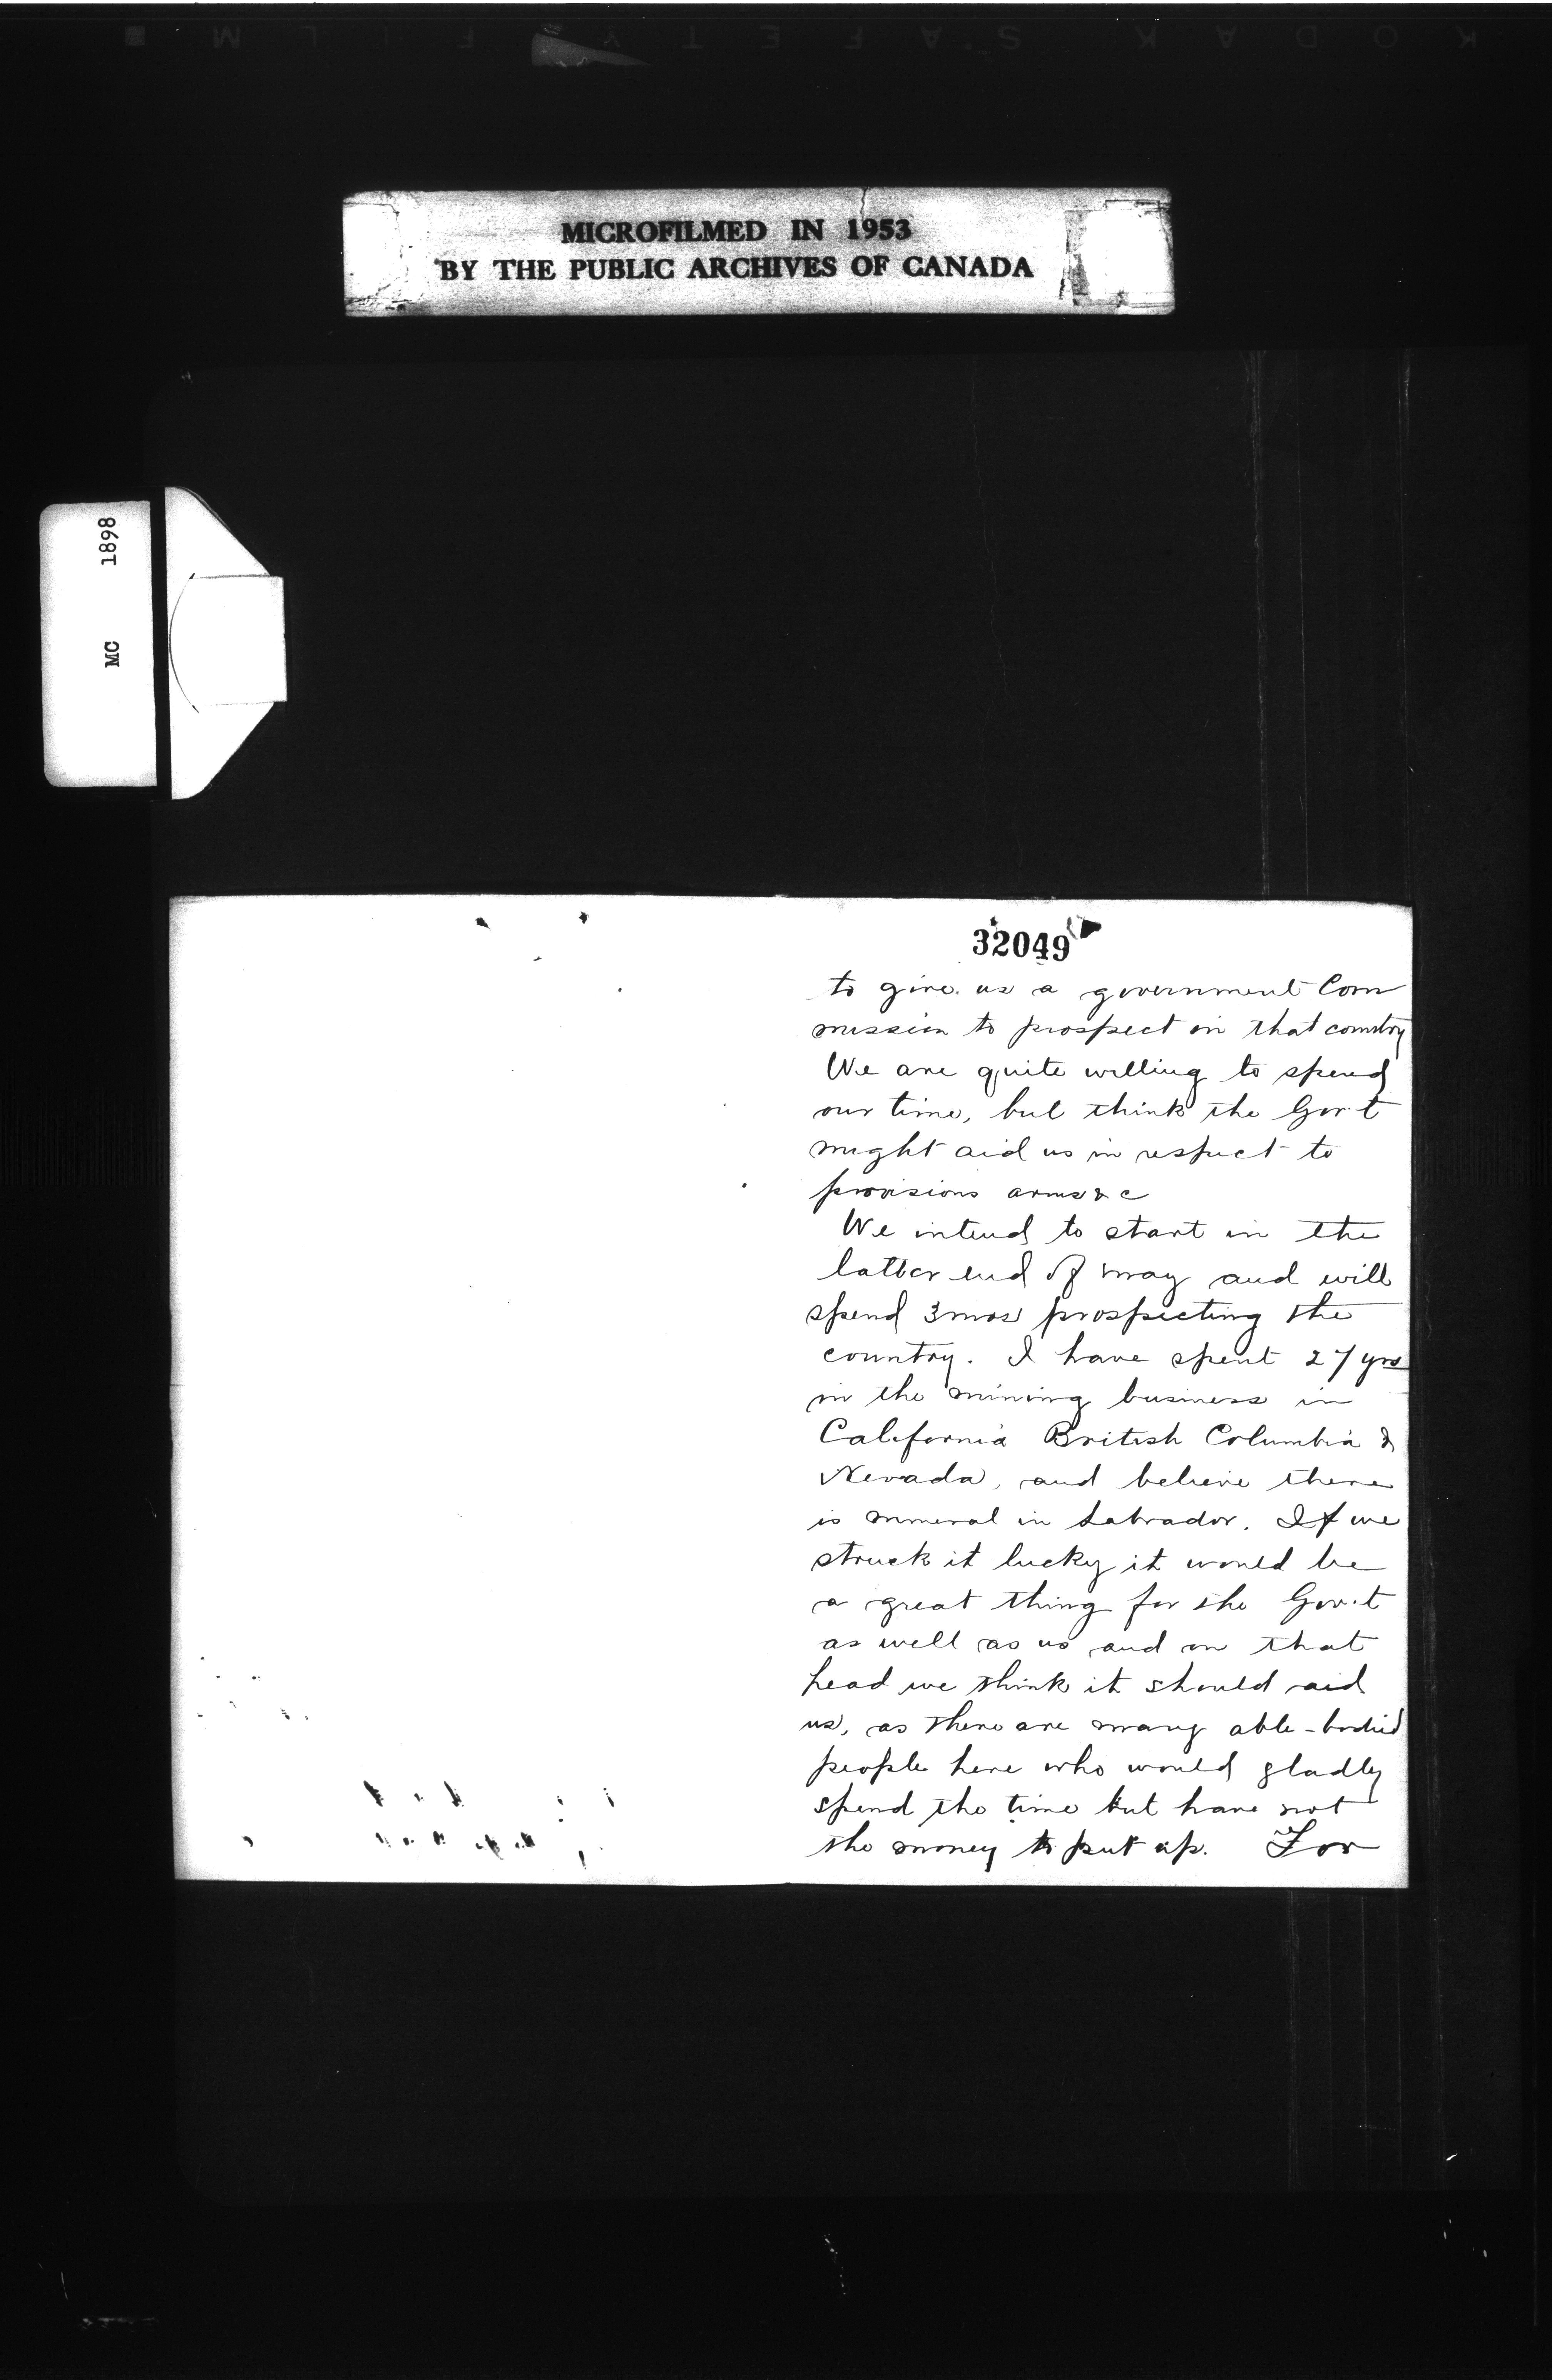 KODAK SAFETY FILM
MICROFILMED IN 1953
BY THE PUBLIC ARCHIVES OF CANADA
MC 1898
32049
to give us a government Com
mission to prospect in that country
We are quite willing to spend
our time, but think the Gov't
might aid us in respect to
provisions arms & c
We intend to start in the
latter end of may and will
spend 3 mos prospecting the
country. I have spent 27 yrs
in the mining business in
California British Columbia &
Nevada, and believe there
is mineral in Labrador. If we
struck it lucky it would be
a great thing for the Gov't
as well as us and on that
head we think it should aid
us, as there are many able-bodied
people here who would gladly
spend the time but have not
the money to put up. For